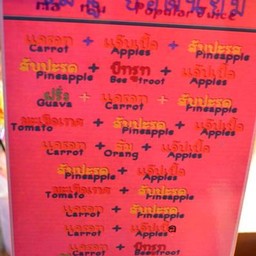 Popular Juice
แครอท + แอ๊ปเปิ้ล + สับปะรด
Carrot Apples Pineapple
สับปะรด + บีทรูท + แอ๊ปเปิ้ล
Pineapple Beetroot Apples
ฝรั่ง + แครอท + สับปะรด
Guava Carrot Pineapple
มะเขือเทศ + สับปะรด + แอ๊ปเปิ้ล
Tomato Pineapple Apples
แครอท + ส้ม + แอ๊ปเปิ้ล
Carrot Orang Apples
สับปะรด + แอ๊ปเปิ้ล
Pineapple Apples
มะเขือเทศ + สับปะรด
Tomato Pineapple
แครอท + สับปะรด
Carrot Pineapple
แครอท + แอ๊ปเปิ้ล
Carrot Apples
แครอท + บีทรูท
Carrot Beetroot